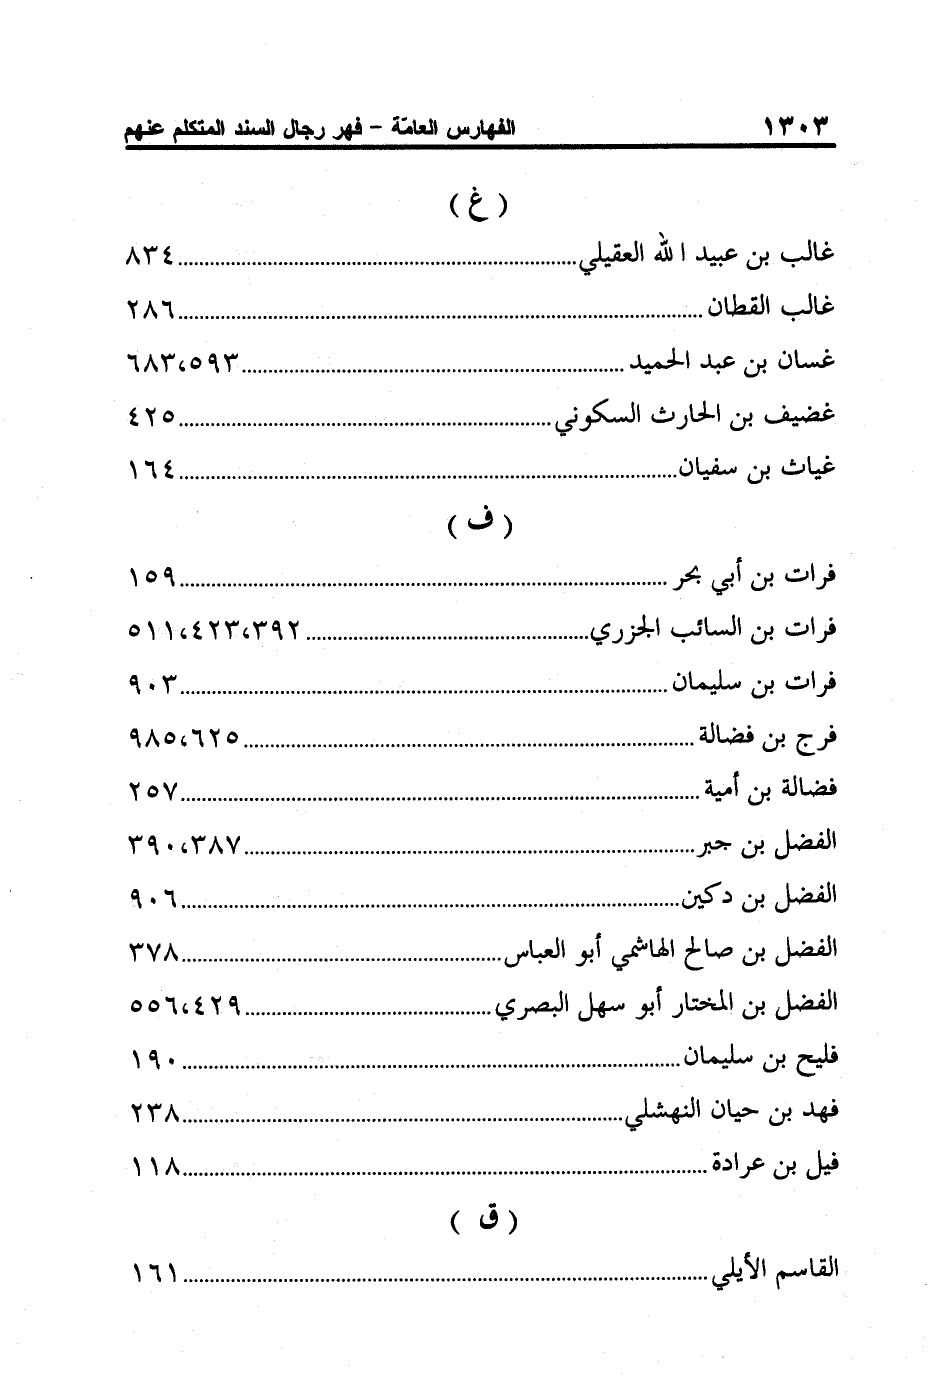 ١٣٠٣ الفهارس العامّة - فهر رجال السند المتكلم عنهم
( غ )
غالب بن عبيد الله العقيلي ٨٣٤
غالب القطان ٢٨٦
غسان بن عبد الحميد ٦٨٣،٥٩٣
غضيف بن الحارث السكوني ٤٢٥
غياث بن سفيان ١٦٤
( ف )
فرات بن أبي بحر ١٥٩
فرات بن السائب الجزري ٥١١،٤٢٣،٣٩٢
فرات بن سليمان ٩٠٣
فرج بن فضالة ٩٨٥،٦٢٥
فضالة بن أمية ٢٥٧
الفضل بن جبر ٣٩٠،٣٨٧
الفضل بن دكين ٩٠٦
الفضل بن صالح الهاشمي أبو العباس ٣٧٨
الفضل بن المختار أبو سهل البصري ٥٥٦،٤٢٩
فليح بن سليمان ١٩٠
فهد بن حيان النهشلي ٢٣٨
فيل بن عرادة ١١٨
( ق )
القاسم الأيلي ١٦١